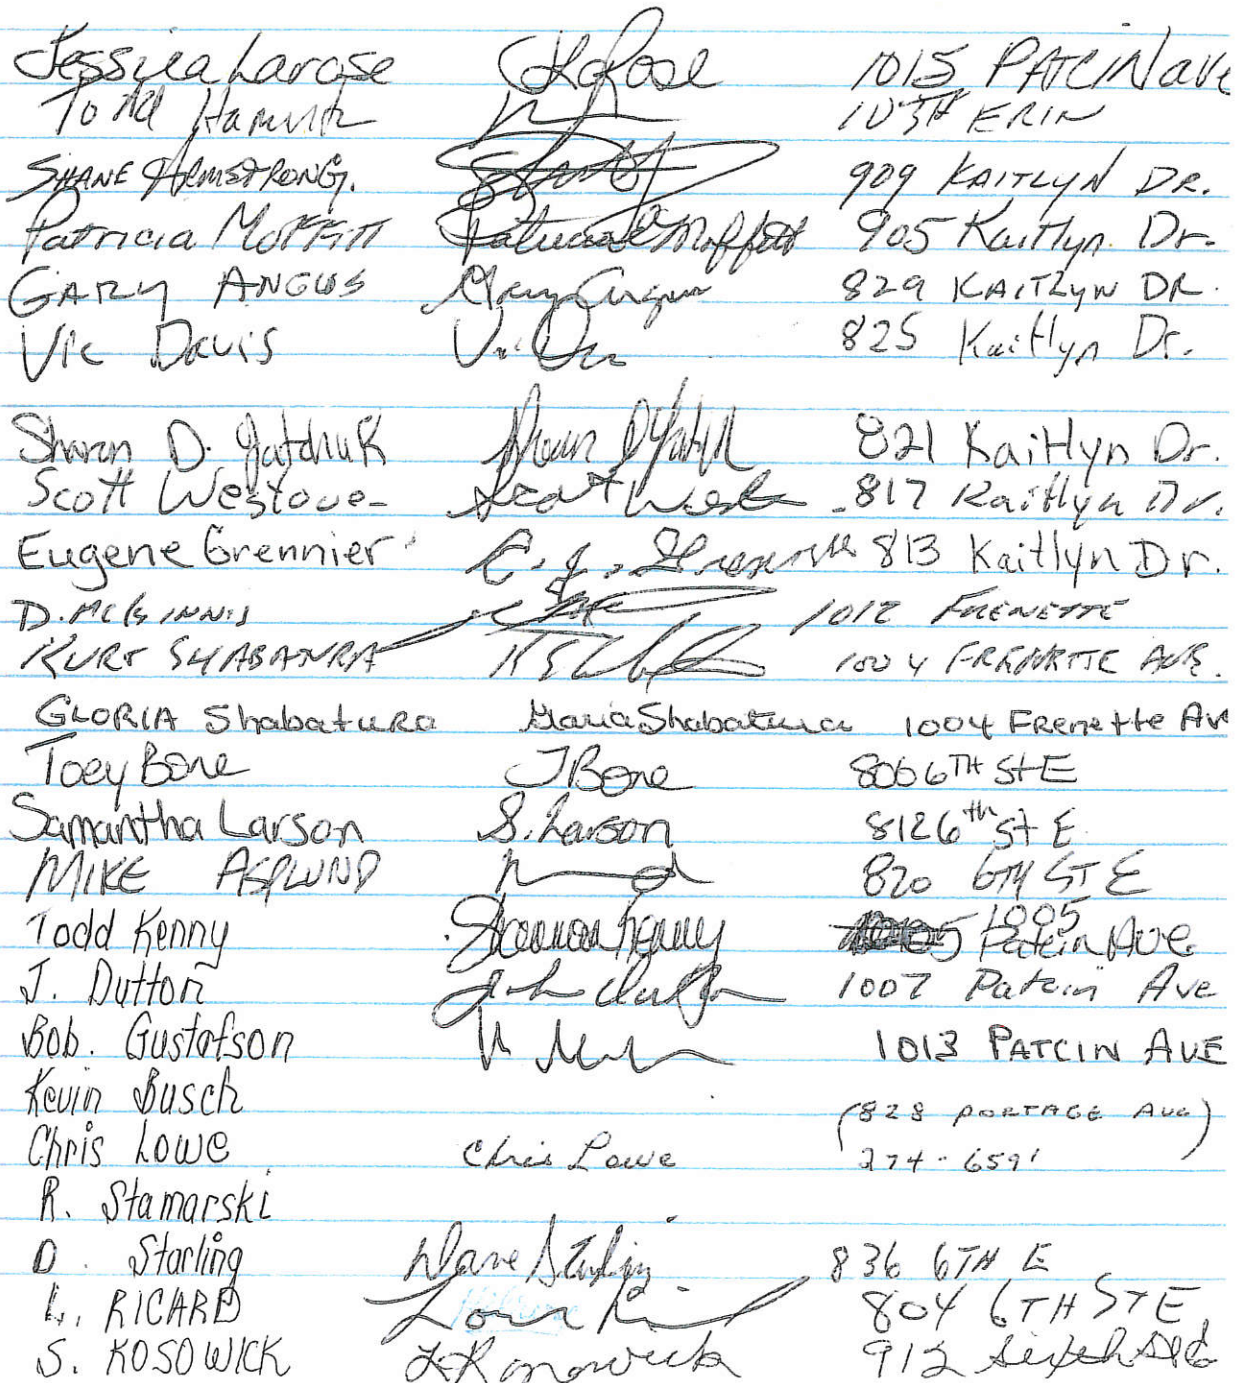 Jessica Larose JLaRose 1015 PATCIN ave
Todd 10 5TH ERIN
SHANE ARMSTRONG. 909 KAITLYN DR.
Patricia MOFFETT Patricia Moffett 905 Kaitlyn. Dr.
GARY ANGUS Gary Angus 829 KAITLYN DR.
Vic Davis 825 Kaitlyn Dr.
Sharon D. Gatchuk 821 Kaitlyn Dr.
Scott Westove- Scott 817 Kaitlyn Dr.
Eugene Grennier E. J. 813 Kaitlyn Dr.
D. MCGINNIS 1012 FRENETTE
KURT 1004 FRENETTE AVE.
GLORIA Shabatura Gloria Shabatura 1004 FRenette Av
Toey Bone J Bone 806 6TH St E
Samantha Larson S. Larson 812 6th St E.
MIKE ASPLUND 820 6TH ST E
Todd Kenny Shannon Kenny 1005 Patcin Ave.
J. Dutton John Dutton 1007 Patcin Ave
Bob. Gustafson 1013 PATCIN AVE
Kevin Busch
(828 PORTAGE AVE)
Chris Lowe Chris Lowe 274-6591
R. Stamarski
D. Starling Dave Starling 836 6TH E
L. RICARD 804 6TH ST E
S. KOSOWICK 912